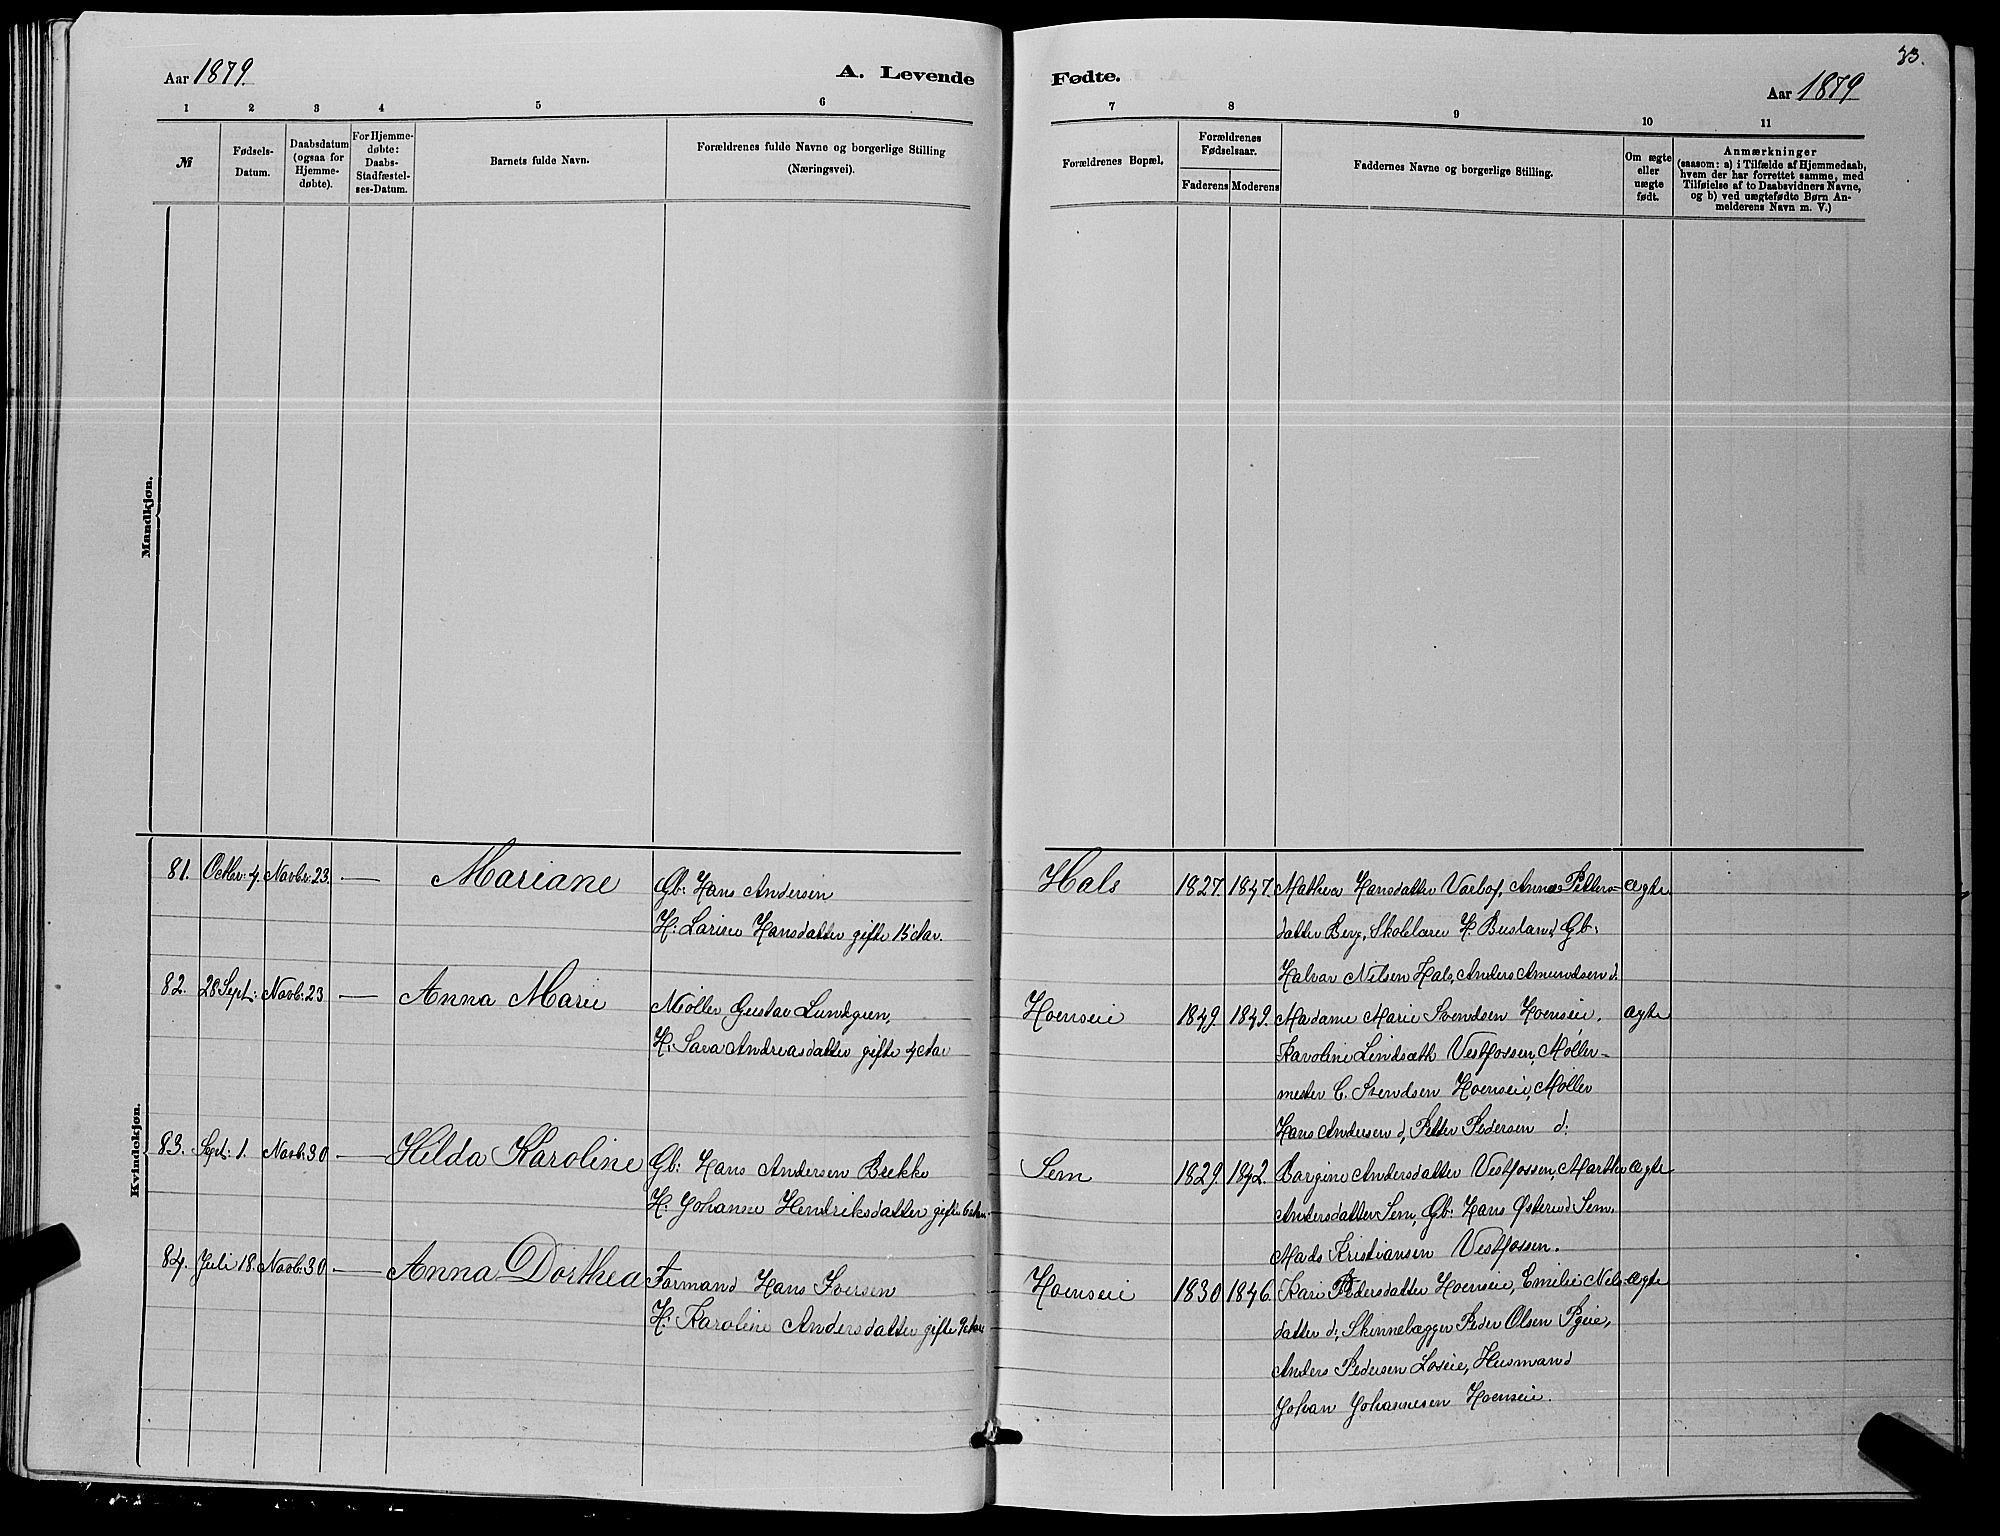 33.
Aar 1879.
A. Levende
Fødte.
Aar 1879
1 2 3 4 5 6
7 8 9 10 11
№
Fødsels-
Datum.
Daabsdatum
(ogsaa for
Hjemme-
døbte).
For Hjemme-
døbte:
Daabs-
Stadfæstel-
ses-Datum.
Barnets fulde Navn.
Forældrenes fulde Navne og borgerlige Stilling
(Næringsvei).
Forældrenes Bopæl.
Forældrenes
Fødselsaar.
Faderens Moderens
Faddernes Navne og borgerlige Stilling.
Om ægte
eller
uægte
født.
Anmærkninger
(saasom: a) i Tilfælde af Hjemmedaab,
hvem der har forrettet samme, med
Tilføielse af to Daabsvidners Navne,
og b) ved uægtefødte Børn An-
melderens Navn m. V.)
Mandkjøn.
Kvindekjøn.
81. Octbr: 4. Novbr. 23. — Mariane
Gb: Hans Andersen
H: Larine Hansdatter gifte 15 Aar.
Hals 1827. 1847.
Mathea Hansdatter Anna Petters= ægte
datter Berg, Skolelærer H. Busland, Gb:
Halvar Nilsen Hals, Anders Amundsen d.
82. 28 Sept: Novb: 23 — Anna Marie
Møller Gustav Lundgren,
H: Sara Andreasdatter gifte 4 Aar
Hoenseie 1849. 1849.
Madame Marie Svendsen Hoenseie, ægte
Karoline Lindsæth Vestfossen, Møller-
mester C. Svendsen Hoenseie, Møller
Hans Andersen d, Petter Pedersen d:
83. Sept: 1. Novb: 30 — Hilda Karoline
Gb: Hans Andersen Bække
H: Johanne Hendriksdatter gifte 6 Aar.
Sem 1829. 1842.
Bargine Andersdatter Vestfossen, Marthe ægte
Andersdatter Sem, Gb: Hans Østerud Sem.
Mads Kristiansen Vestfossen.
84. Juli 18. Novb: 30 — Anna Dorthea
Formand Hans Iversen
H: Karoline Andersdatter gifte 9 Aar
Hoenseie 1830 1846.
Kari Pedersdatter Hoenseie, Emilie Nels- ægte
datter d, Skinnelægger Peder Olsen
Anders Pedersen Loseie, Husmand
Johan Johannesen Hoenseie.